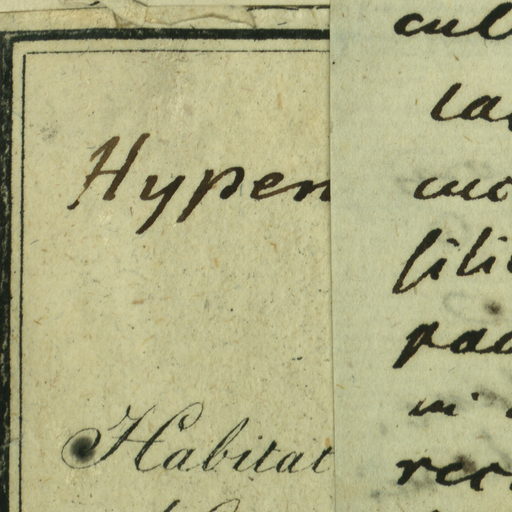 Hypen
Habitat
cul
la
cuo
sili
pac
in
rec